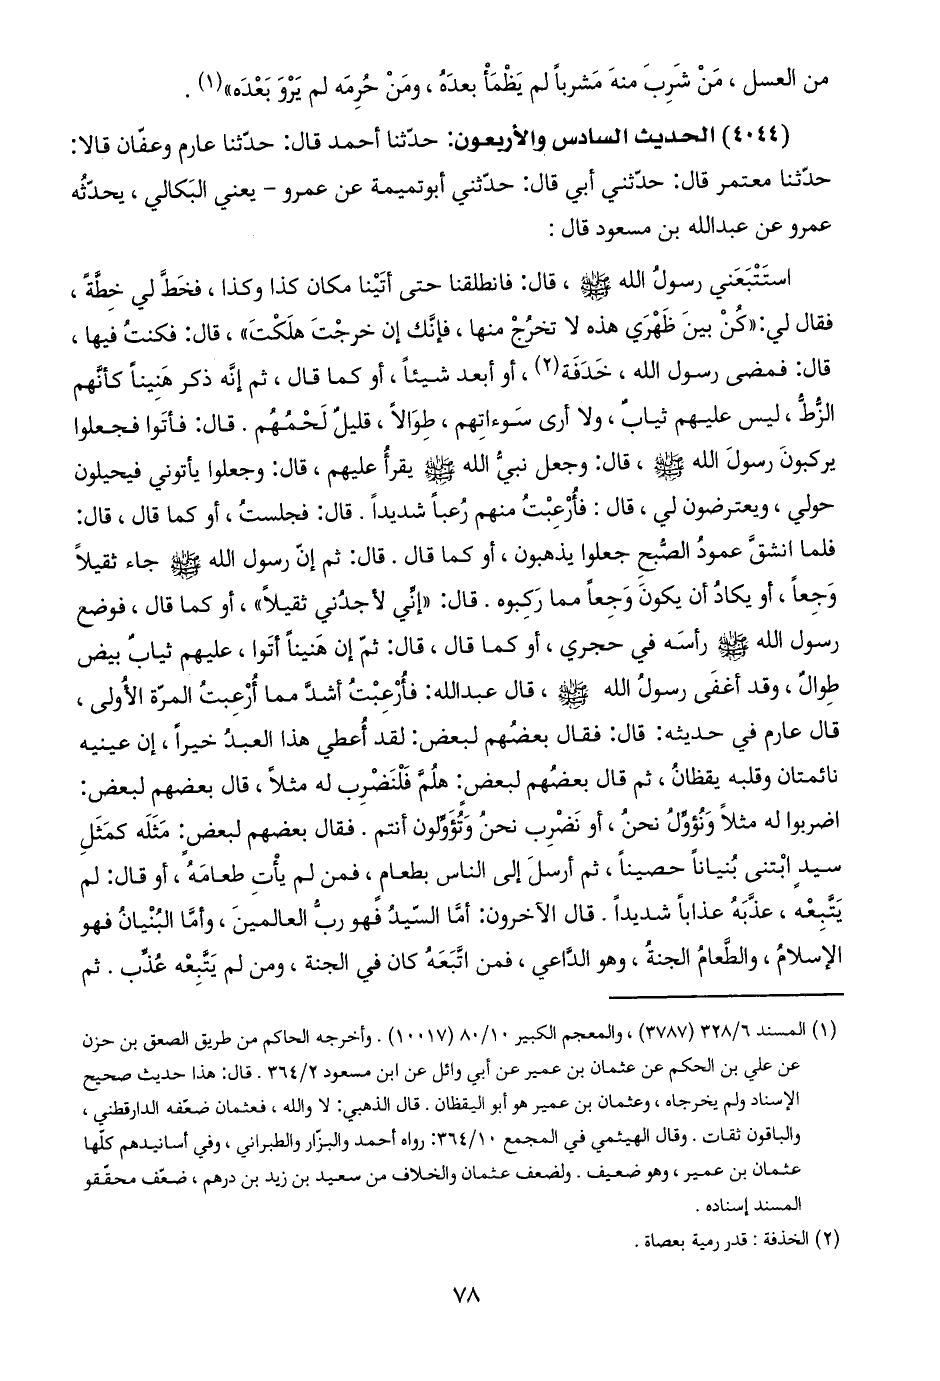 من العسل ، مَنْ شَرِبَ منهَ مَشرباً لم يَظْمَأْ بعدَهُ ، ومَنْ حُرِمَه لم يَرْوَ بَعْدَه»(١) .
(٤٠٤٤) الحديث السادس والأربعون: حدّثنا أحمد قال: حدّثنا عارم وعفّان قالا:
حدّثنا معتمر قال: حدّثني أبي قال: حدّثني أبوتميمة عن عمرو - يعني البَكالي ، يحدّثُه
عمرو عن عبدالله بن مسعود قال :
استَتْبَعَني رسولُ الله ﷺ ، قال: فانطلقنا حتى أتَيْنا مكان كذا وكذا ، فخَطَّ لي خِطَّةً ،
فقال لي:«كُنْ بينَ ظَهْرَي هذه لا تخرُجْ منها ، فإنَّك إن خرجْتَ هلَكْتَ» ، قال: فكنتُ فيها ،
قال: فمضى رسول الله ، خَذَفَة(٢) ، أو أبعد شيئاً ، أو كما قال ، ثم إنَّه ذكر هَنِيناً كأنَّهم
الزُّطُّ ، ليس عليهم ثيابٌ ، ولا أرى سَوءاتِهم ، طِوَالاً ، قليلٌ لَحْمُهُم . قال: فأتَوا فجعلوا
يركبونَ رسولَ الله ﷺ ، قال: وجعل نبيُّ الله ﷺ يقرأُ عليهم ، قال: وجعلوا يأتوني فيحيلون
حولي ، ويعترضون لي ، قال : فأُرْعِبْتُ منهم رُعباً شديداً . قال: فجلستُ ، أو كما قال ، قال:
فلما انشقَّ عمودُ الصُّبح جعلوا يذهبون ، أو كما قال . قال: ثم إنّ رسول الله ﷺ جاء ثقيلاً
وَجِعاً ، أو يكادُ أن يكونَ وَجِعاً مما رَكِبوه . قال: «إنِّي لأجدُني ثقيلاً» ، أو كما قال ، فوضع
رسول الله ﷺ رأسَه في حجري ، أو كما قال ، قال: ثمّ إن هَنيناً أتَوا ، عليهم ثيابٌ بيض
طِوالٌ ، وقد أغفَى رسولُ الله ﷺ ، قال عبدالله: فأُرْعِبْتُ أشدَّ مما أُرْعِبتُ المرّة الأُولى ،
قال عارم في حديثه: قال: فقال بعضُهم لبعض: لقد أُعطي هذا العبدُ خيراً ، إن عينيه
نائمتان وقلبه يقظانُ ، ثم قال بعضُهم لبعض: هلُمَّ فَلْنَضْرِب له مثلاً ، قال بعضهم لبعض:
اضربوا له مثلاً وَنُؤوِّلُ نحنُ ، أو نَضْرِب نحنُ وَتُؤَوِّلون أنتم . فقال بعضهم لبعض: مَثَلَه كمَثَلِ
سيدٍ ابْتنى بُنياناً حصيناً ، ثم أرسلَ إلى الناس بطعام ، فمن لم يأْتِ طعامَهُ ، أو قال: لم
يَتَّبِعْه ، عذَّبَهُ عذاباً شديداً . قال الآخرون: أمَّا السّيدُ فهو ربُّ العالمينَ ، وأمَّا البُنْيانُ فهو
الإسلامُ ، والطَّعامُ الجنةُ ، وهو الدَّاعي ، فمن اتَّبَعَهُ كان في الجنة ، ومن لم يَتَّبِعْه عُذِّب . ثم
(١) المسند ٣٢٨/٦ (٣٧٨٧) ، والمعجم الكبير ٨٠/١٠ (١٠٠١٧) . وأخرجه الحاكم من طريق الصعق بن حزن
عن علي بن الحكم عن عثمان بن عمير عن أبي وائل عن ابن مسعود ٣٦٤/٢ . قال: هذا حديث صحيح
الإسناد ولم يخرجاه ، وعثمان بن عمير هو أبو اليقظان . قال الذهبي: لا والله ، فعثمان ضعّفه الدارقطني ،
والباقون ثقات . وقال الهيثمي في المجمع ٣٦٤/١٠: رواه أحمد والبزّار والطبراني ، وفي أسانيدهم كلّها
عثمان بن عمير ، وهو ضعيف . ولضعف عثمان والخلاف من سعيد بن زيد بن درهم ، ضعّف محقّقو
المسند إسناده .
(٢) الخذفة : قدر رمية بعصاة .
٧٨